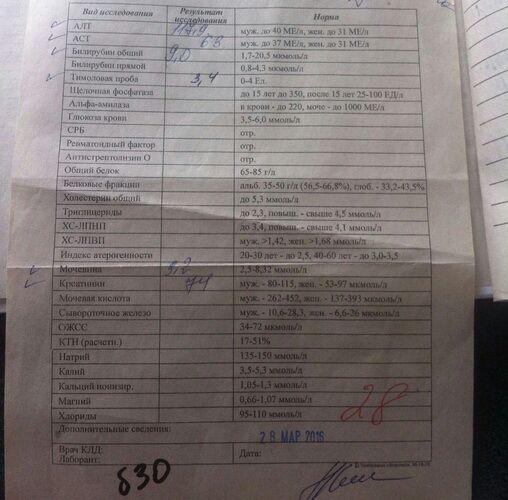 Вид исследования Результат исследования Норма
АЛТ 117,9 муж. до 40 МЕ/л, жен. до 31 МЕ/л
АСТ 68 муж. до 37 МЕ/л, жен. до 31 МЕ/л
Билирубин общий 9,0 1,7-20,5 мкмоль/л
Билирубин прямой 0,8-4,3 мкмоль/л
Тимоловая проба 3,4 0-4 Ед.
Щелочная фосфатаза до 15 лет до 350, после 15 лет 25-100 ЕД/л
Альфа-амилаза в крови - до 220, моче - до 1000 МЕ/л
Глюкоза крови 3,5-6,0 ммоль/л
СРБ отр.
Ревматоидный фактор отр.
Антистрептолизин О отр.
Общий белок 65-85 г/л
Белковые фракции альб. 35-50 г/л (56,5-66,8%), глоб. - 33,2-43,5%
Холестерин общий до 5,3 ммоль/л
Триглицериды до 2,3, повыш. - свыше 4,5 ммоль/л
ХС-ЛПНП до 3,4, повыш. - свыше 4,1 ммоль/л
ХС-ЛПВП муж. >1,42, жен. >1,68 ммоль/л
Индекс атерогенности 20-30 лет - до 2,5, 40-60 лет - до 3,0-3,5
Мочевина 3,2 2,5-8,32 ммоль/л
Креатинин 74 муж. - 80-115, жен. - 53-97 мкмоль/л
Мочевая кислота муж. - 262-452, жен. - 137-393 мкмоль/л
Сывороточное железо муж. - 10,6-28,3, жен. - 6,6-26 мкмоль/л
ОЖСС 34-72 мкмоль/л
КТН (расчетн.) 17-51%
Натрий 135-150 ммоль/л
Калий 3,5-5,3 ммоль/л
Кальций ионизир. 1,05-1,3 ммоль/л
Магний 0,66-1,07 ммоль/л
Хлориды 95-110 ммоль/л
28
Дополнительные сведения:
28 МАР 2016
Врач КЛД: Дата:
Лаборант:
630